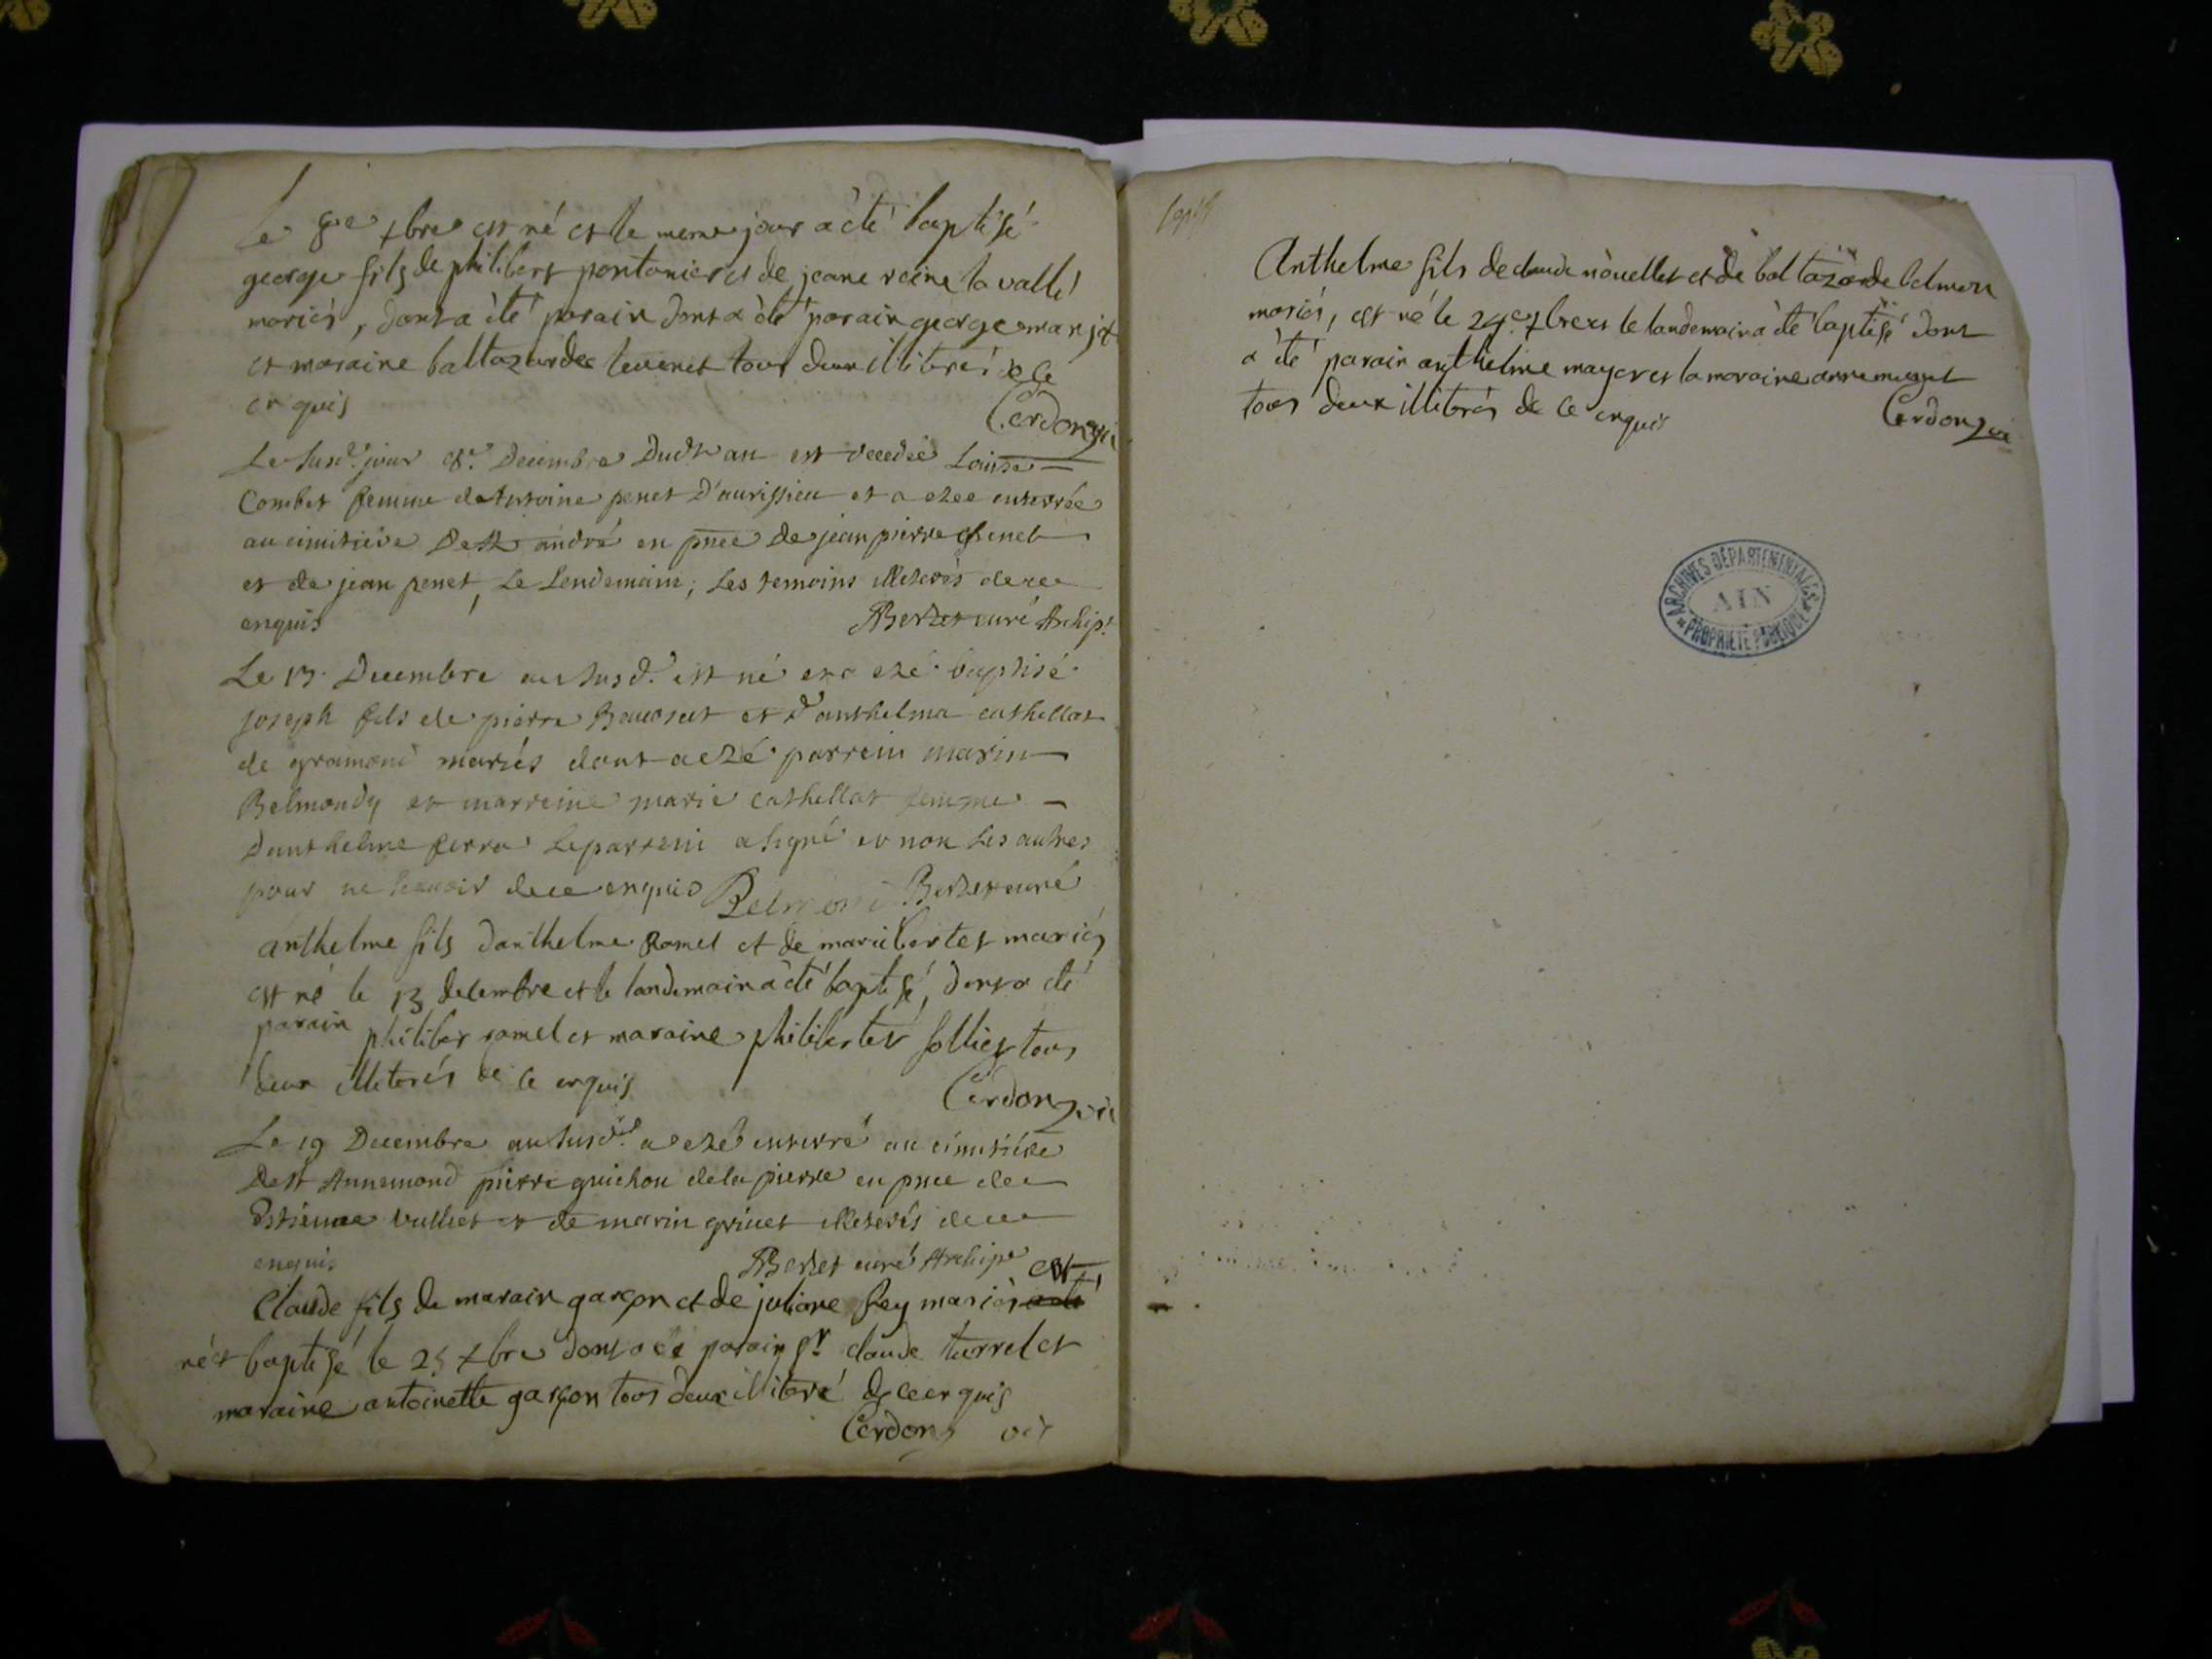 Le 8e xbre est né et le meme jour a èté baptisé
george fils de philibert pontanier et de jeane reine la vallé
mariés, dont a èté parain dont a èté parain george manjot
et maraine baltazarde tevenet tous deux illiteré de ce
enquis Cerdon vic
Le susd. jour 8e. Decembre Dudt an est decedée Louise
Combet femme de Antoine penet D'aurissieu et a eté enterrée
au cimitiére De St andré en pnce De jean pierre
et de jean penet, Le Lendemain, Les temoins illiterés de ce
enquis Berzet curé Archip.
Le 13. Decembre an susd. est né et a eté baptisé
joseph fils de pierre et d'anthelma cathellat
de gramond mariés dont a eté parrein marin
Belmondy et marreine marie cathellat femme
Danthelme ferra Le parrein a signé et non Les autres
pour ne scavoir de ce enquis Belmond Berzet curé
anthelme fils d'anthelme Ramel et de marie bertet mariés
est né le 13 decembre et le landemain a èté baptisé, dont a èté
parain philiber ramel et maraine philiberte sollier tous
deux illiterés de ce enquis Cerdon vic
Le 19 Decembre an susd. a eté enterré au cimitiére
De St Annemond pierre guichon de la pierre en pnce de
Estienne Vulliet et de marin grinet illeterés de ce
enquis Berzet curé Archipe
Claude fils de marain garçon et de juliane fey mariés est
né et baptisé le 25 xbre dont a èté parain sr. claude turrel et
maraine antoinette garçon tous deux illiteré de ce enquis
Cerdon vic
Anthelme fils de claude nouellet et de baltazarde belmon
mariés, est né le 24e xbre et le landemain a èté baptisé dont
a èté parain anthelme mayer et la maraine anne
tous deux illiterés de ce enquis Cerdon vic
ARCHIVES DÉPARTEMENTALES
AIN
PROPRIÉTÉ PUBLIQUE